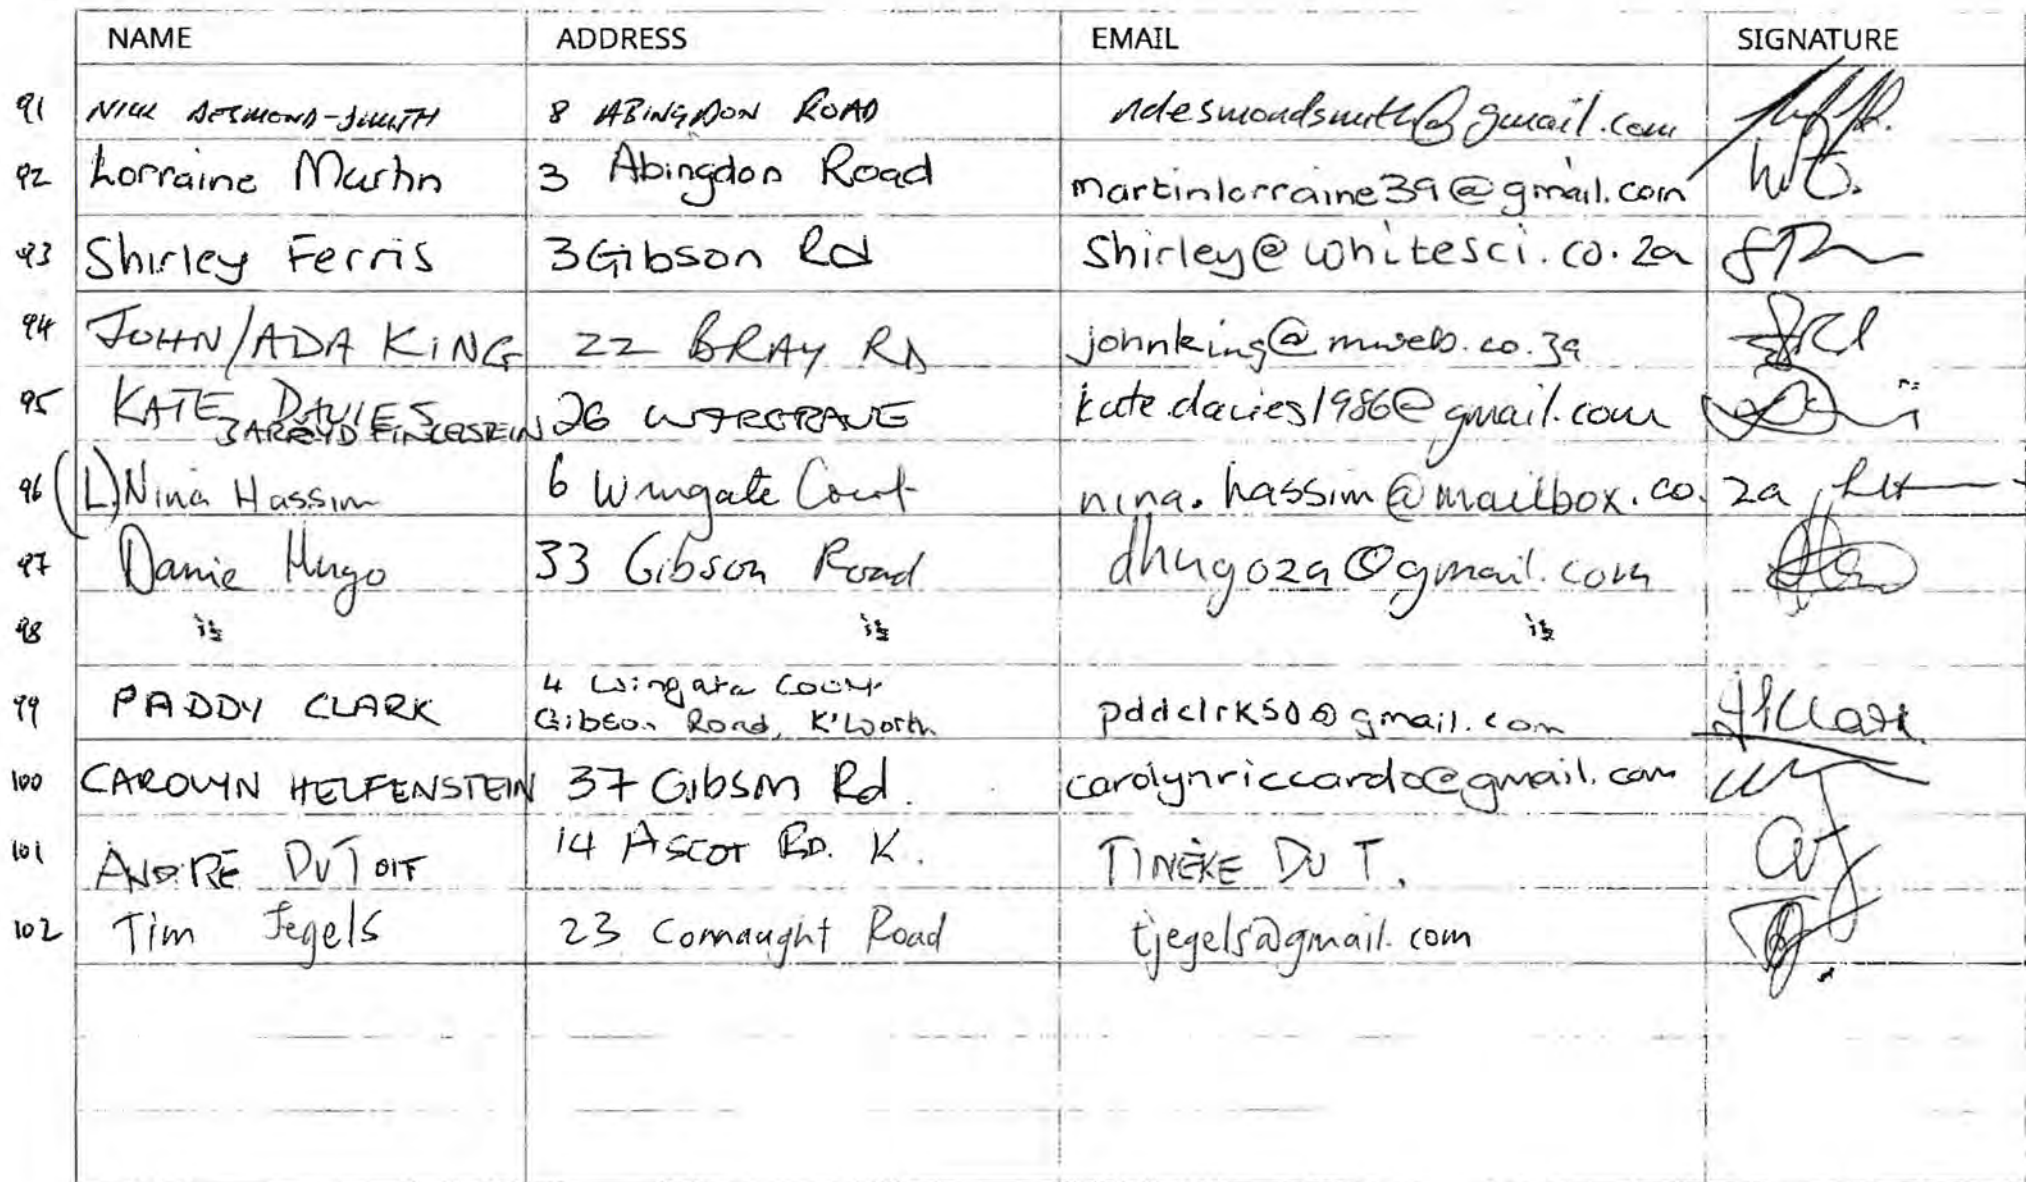 NAME ADDRESS EMAIL SIGNATURE
91 NICK DESMOND-SMITH 8 ABINGDON ROAD ndesmondsmith@gmail.com
92 Lorraine Martin 3 Abingdon Road martinlorraine39@gmail.com
93 Shirley Ferris 3 Gibson Rd Shirley@whitesci.co.za
94 JOHN/ADA KING 22 BRAY RD johnking@mweb.co.za
95 KATE DAVIES 26 WARGRAVE kate.davies1986@gmail.com
96 (L) Nina Hassim 6 Wingate Court nina.hassim@mailbox.co.za
97 Danie Hugo 33 Gibson Road dhugoza@gmail.com
98
99 PADDY CLARK 4 Wingate Court pddclrk50@gmail.com
Gibson Road, K'Worth
100 CAROLYN HELFENSTEIN 37 Gibson Rd. carolynriccardo@gmail.com
101 ANDRÉ DU TOIT 14 ASCOT RD. K. TINEKE DU T.
102 Tim Jegels 23 Connaught Road tjegels@gmail.com